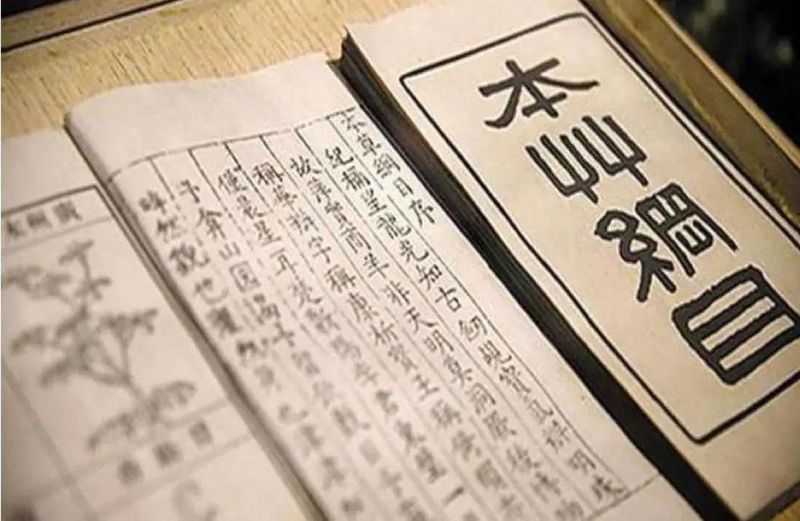 本艸綱目
本草綱目序
紀稱望龍光知古劒覘寶氣辨明珠
故萍實商羊非天明莫洞厥後博物
稱華辨字稱康析寶玉稱倚頓亦
僅晨星耳楚蘄陽李君東璧一
予弇山園謁予留飲數日予
睟然貌也癯然身也津津